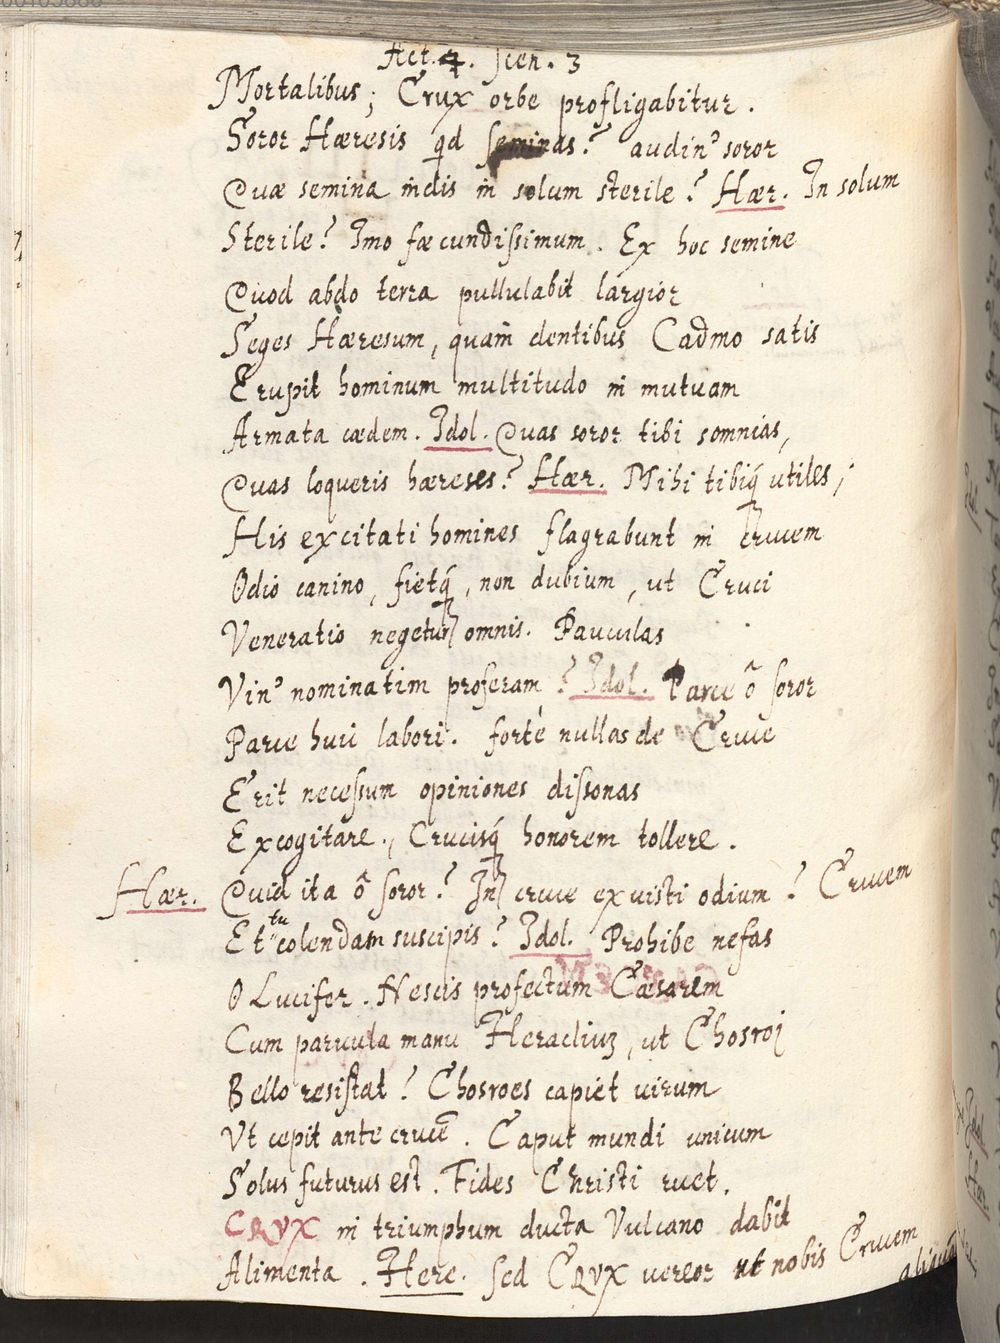 Act. 4. Scen. 3
Mortalibus; Crux orbe profligabitur.
Soror Hæresis qd seminas? audin' soror
Quæ semina indis in solum sterile? Hær. In solum
Sterile? Imo fæcundissimum. Ex hoc semine
Quod abdo terra pullulabit largior
Seges Hæresum, quam dentibus Cadmo satis
Erupit hominum multitudo in mutuam
Armata cædem. Idol. Quas soror tibi somnias,
Quas loqueris hæreses? Hær. Mihi tibiq́ utiles;
His excitati homines flagrabunt in crucem
Odio canino, fietq́, non dubium, ut Cruci
Veneratio negetur omnis. Pauculas
Vin' nominatim proferam? Idol. Parce ô soror
Parce huic labori. forte nullas de Cruce
Erit necessum opiniones dissonas
Excogitare, Crucisq́ honorem tollere.
Hær. Quid ita ô soror? In cruce exuisti odium? Crucem
Et tu colendam suscipis? Idol. Prohibe nefas
O Lucifer. Nescis profectum Cæsarem
Cum parvula manu Heraclium, ut Chosroi
Bello resistat? Chosroes capiet uirum
Vt cepit ante crucē. Caput mundi unicum
Solus futurus est. Fides Christi ruet.
CRVX in triumphum ducta Vulcano dabit
Alimenta. Here. sed CRVX uereor ut nobis Crucem